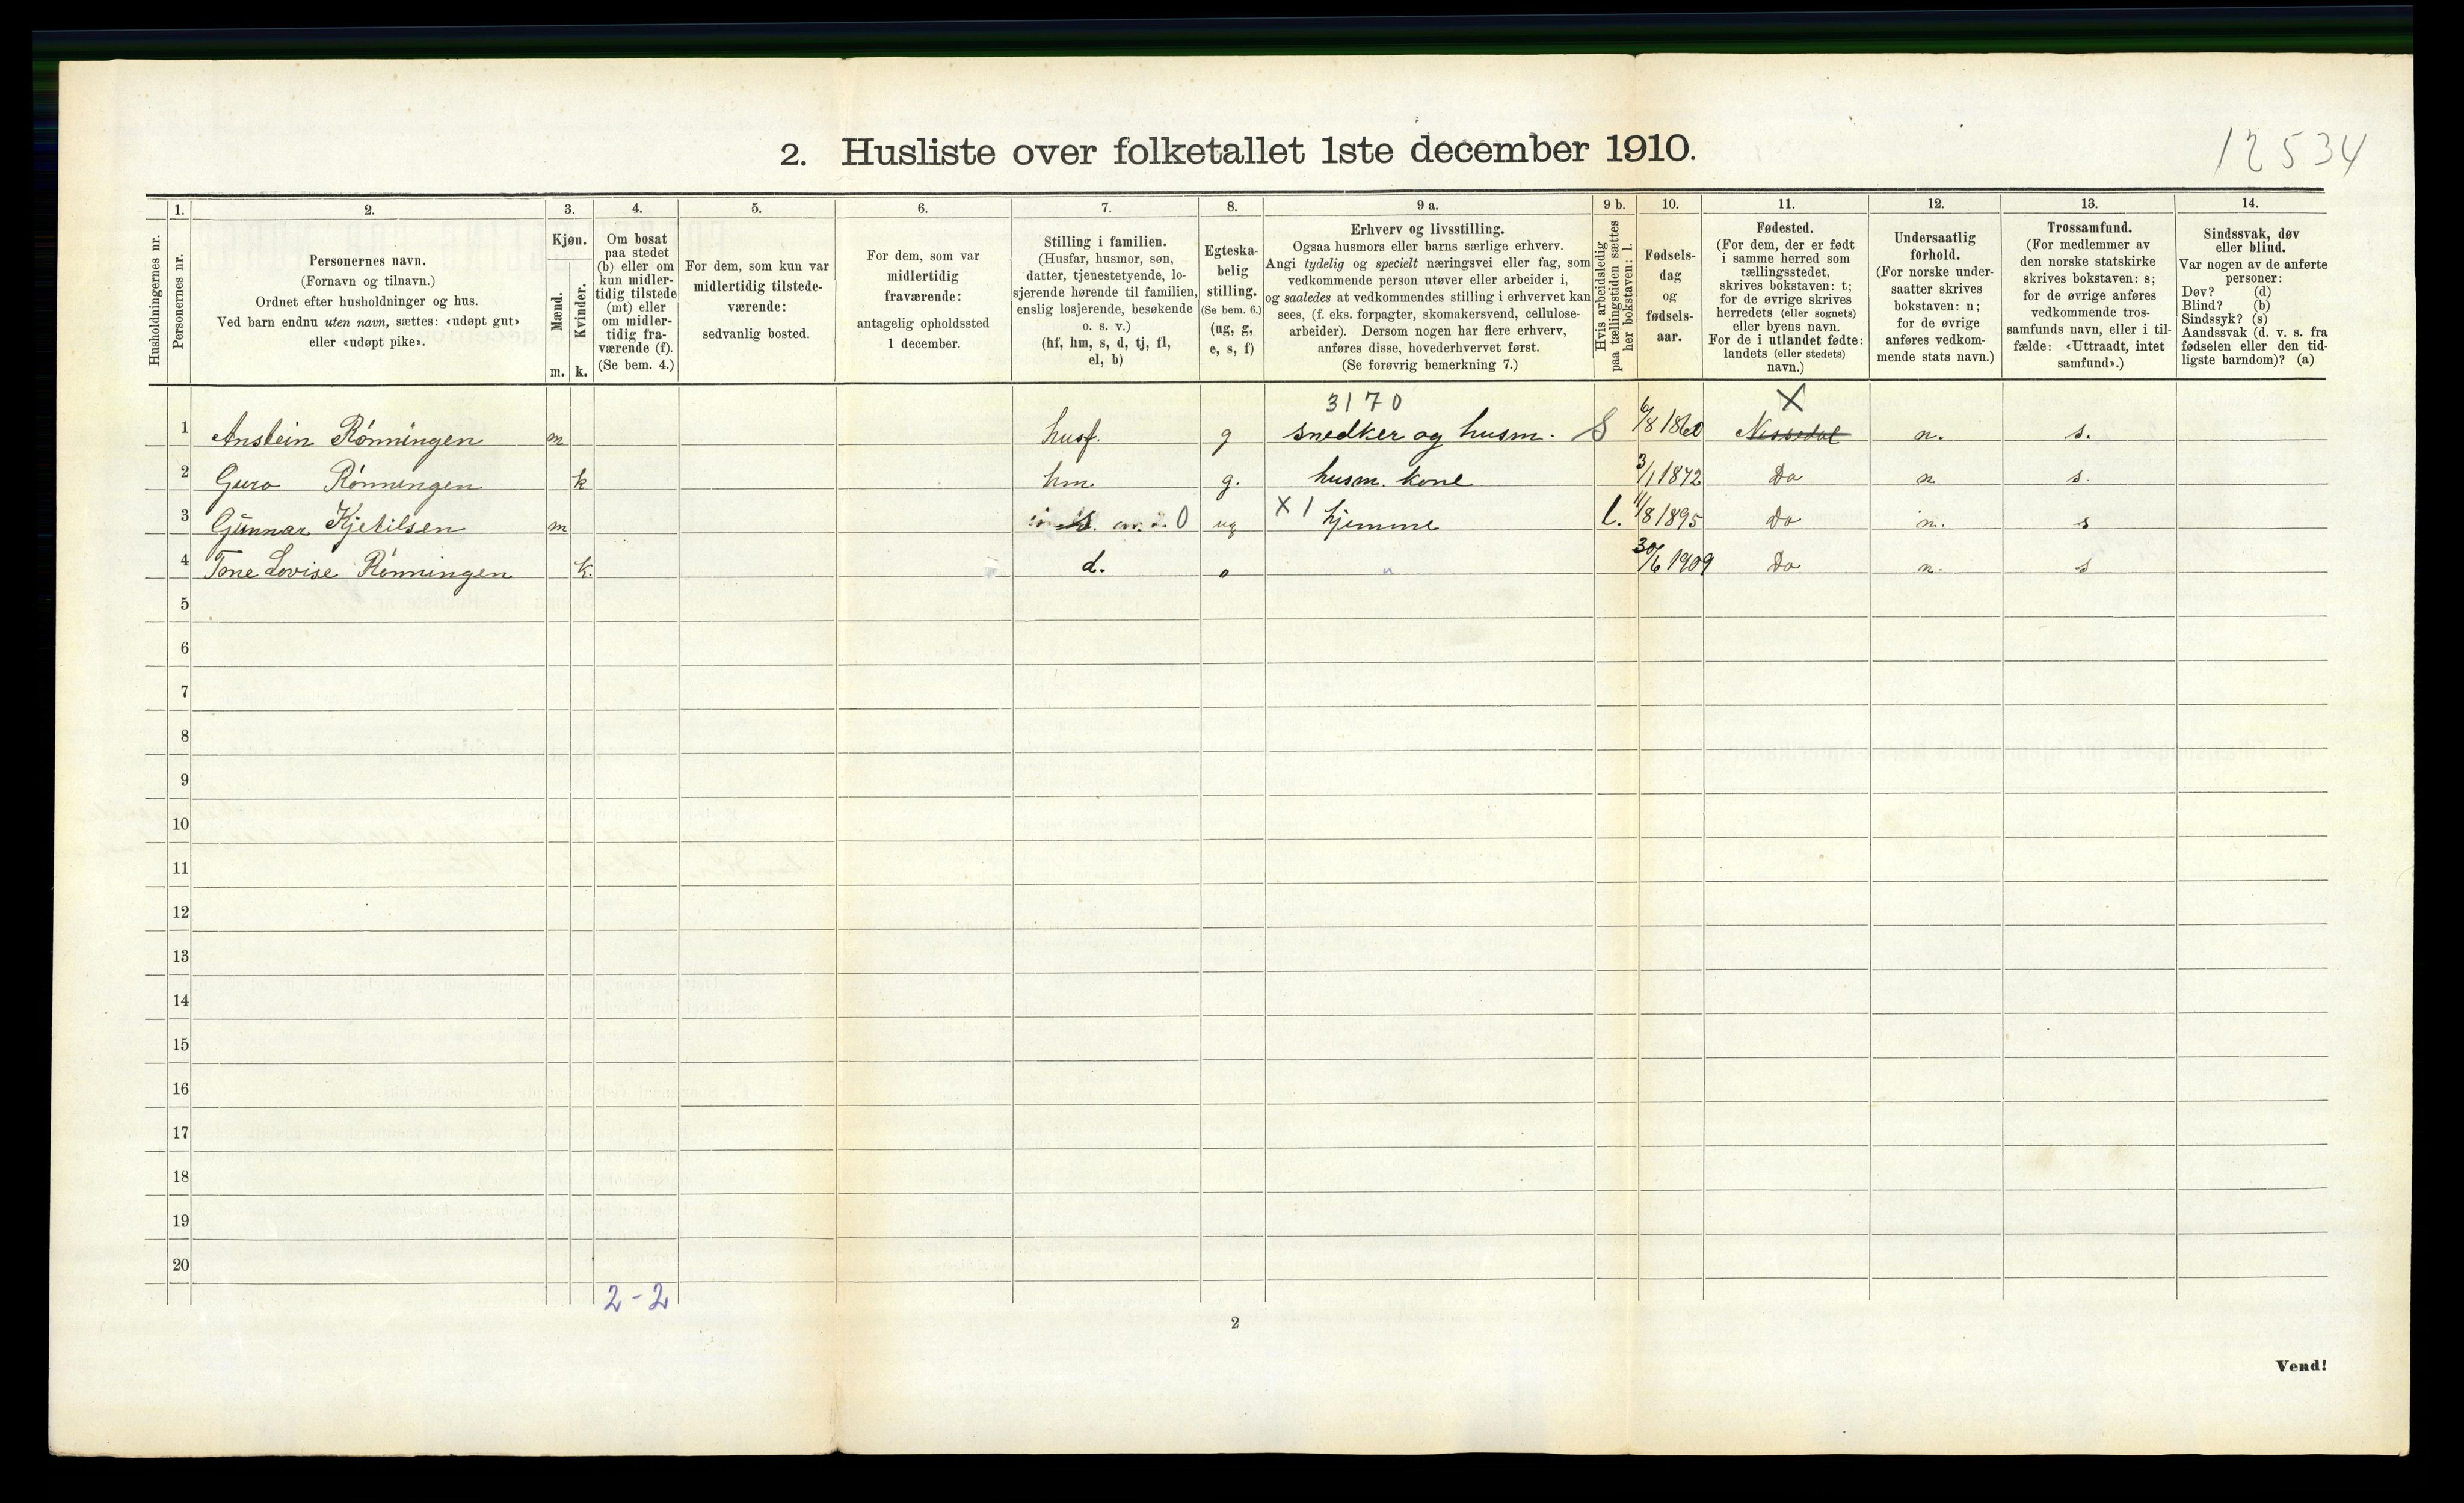 12534
2. Husliste over folketallet 1ste december 1910.
Husholdningernes nr.
1.
Personernes nr.
2.
Personernes navn.
(Fornavn og tilnavn.)
Ordnet efter husholdninger og hus.
Ved barn endnu uten navn, sættes: «udøpt gut»
eller «udøpt pike».
3.
Kjøn.
Mænd.
Kvinder.
m. k.
4.
Om bosat
paa stedet
(b) eller om
kun midler-
tidig tilstede
(mt) eller
om midler-
tidig fra-
værende (f).
(Se bem. 4.)
5.
For dem, som kun var
midlertidig tilstede-
værende:
sedvanlig bosted.
6.
For dem, som var
midlertidig
fraværende:
antagelig opholdssted
1 december.
7.
Stilling i familien.
(Husfar, husmor, søn,
datter, tjenestetyende, lo-
sjerende hørende til familien,
enslig losjerende, besøkende
o. s. v.)
(hf, hm, s, d, tj, fl,
el, b)
8.
Egteska-
belig
stilling.
(Se bem. 6.)
(ug, g,
e, s, f)
9 a.
Erhverv og livsstilling.
Ogsaa husmors eller barns særlige erhverv.
Angi tydelig og specielt næringsvei eller fag, som
vedkommende person utøver eller arbeider i,
og saaledes at vedkommendes stilling i erhvervet kan
sees, (f. eks. forpagter, skomakersvend, cellulose-
arbeider). Dersom nogen har flere erhverv,
anføres disse, hovederhvervet først.
(Se forøvrig bemerkning 7.)
9 b.
Hvis arbeidsledig
paa tællingstiden sættes
her bokstaven: l.
10.
Fødsels-
dag
og
fødsels-
aar.
11.
Fødested.
(For dem, der er født
i samme herred som
tællingsstedet,
skrives bokstaven: t;
for de øvrige skrives
herredets (eller sognets)
eller byens navn.
For de i utlandet fødte:
landets (eller stedets)
navn.)
12.
Undersaatlig
forhold.
(For norske under-
saatter skrives
bokstaven: n;
for de øvrige
anføres vedkom-
mende stats navn.)
13.
Trossamfund.
(For medlemmer av
den norske statskirke
skrives bokstaven: s;
for de øvrige anføres
vedkommende tros-
samfunds navn, eller i til-
fælde: «Uttraadt, intet
samfund».)
14.
Sindssvak, døv
eller blind.
Var nogen av de anførte
personer:
Døv? (d)
Blind? (b)
Sindssyk? (s)
Aandssvak (d. v. s. fra
fødselen eller den tid-
ligste barndom)? (a)
3170 X
1 Anstein Rønningen m husf. g snedker og husm. S 6/8 1860 Nissedal n. s.
2 Guro Rønningen k hm. g. husm. kone 3/1 1872 Do n s.
3 Gunnar Kjetilsen m s. 0 ug X 1 hjemme l. 11/8 1895 Do n. s
4 Tone Lovise Rønningen k. d. o 30/6 1909 Do n. s
5
6
7
8
9
10
11
12
13
14
15
16
17
18
19
20
2-2
2
Vend!